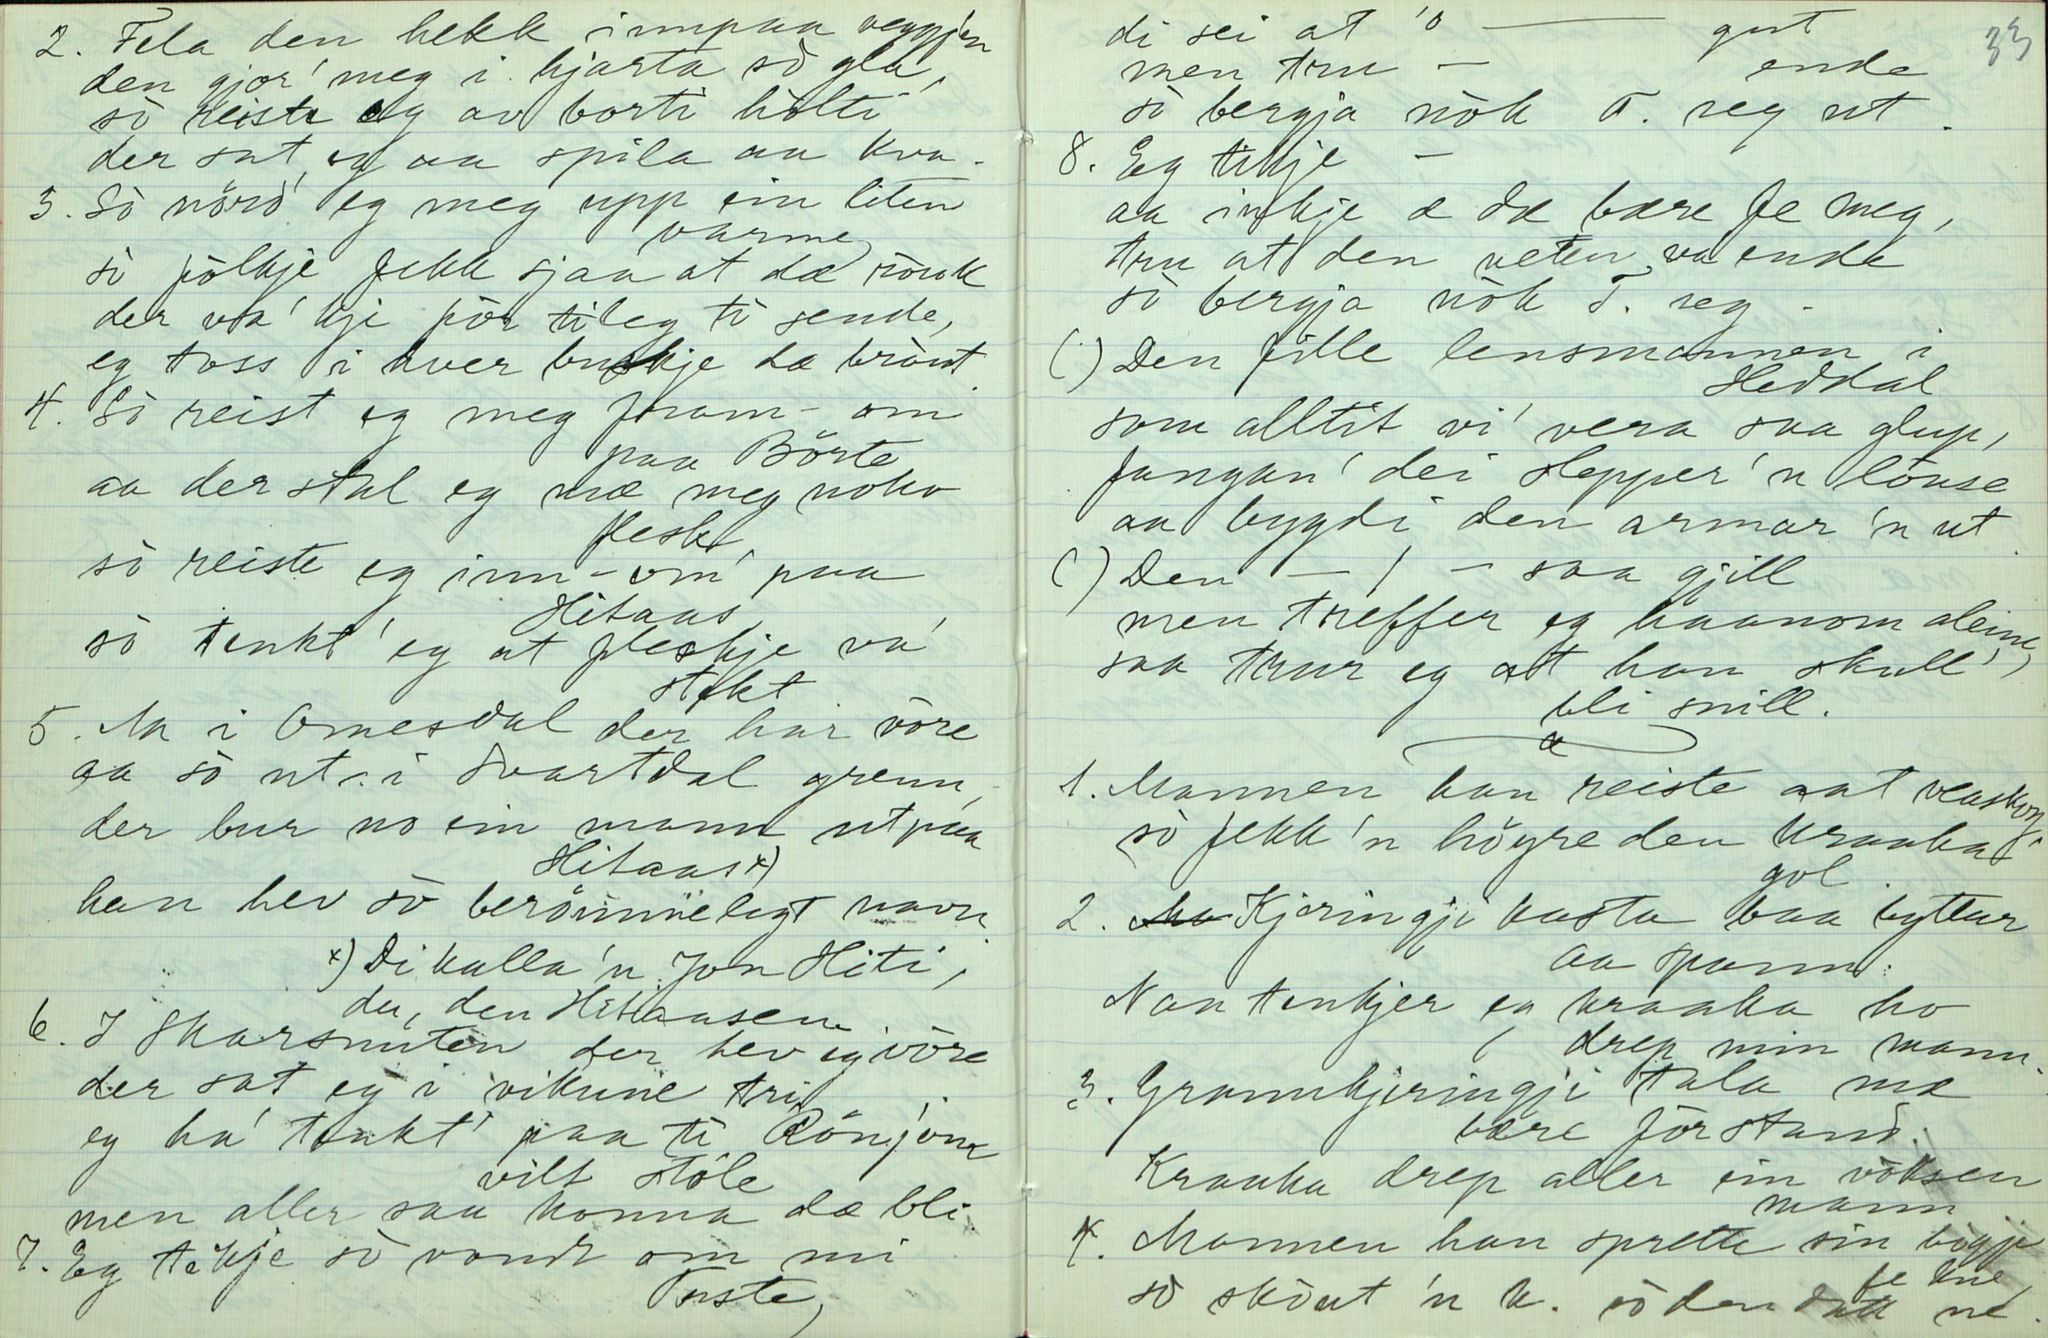 2. Fela den hekk innpaa veggj'en
den gjor' meg i hjarta sò gla,
sò reiste eg av borti hòlti
der sat eg aa spila aa kva.
3. Sò nörd' eg meg upp ein liten
varme
sò fòlkje fekk sjaa at dæ röuk
der va' kji fòr til eg ti sende,
eg toss i hver buskje dæ bròut.
4. Sò reist eg meg fram- om
paa Börte
aa der stal eg mæ meg noko
flesk
sò reiste eg inn-om' paa
Hitaas
sò tenkt' eg at fleskje va'
stekt
5. Aa i Omesdal der har vòre
aa sò ut-i Svartdal grenn,
der bur no ein mann utpaa
Hitaas x)
han hev sò berömmeligt navn.
x) Di kalla 'n Jon Hiti,
du, den Hitaasen.
6. I Skarsnuten der hev eg vòre
der sat eg i vikune tri,
eg ha' tenkt' paa ti Rönjom
vilt stòle
men aller saa konna dæ bli.
7. Eg tikje sò vondt om mi
Toste,
33
di sei at 'o — gut
men tru — ende
sò bergja nòk T. seg ut.
8. Eg tikje —
aa inkje æ dæ bære fe meg,
tru at den veten va ende
sò bergja nòk T. seg -
(:) Den fille lensmannen i
Heddal
som alltit vi' vera saa glup,
fangan' dei slepper 'n löuse
aa bygdi den armar 'n ut.
(:) Den — / — saa gjill
men treffer eg haanom aleine,
saa trur eg at han skull'
bli snill.
x
1. Mannen han reiste aat veaskog
sò fekk 'n höyre den kraaka
gol
2. Kjeringji kasta baa byttur
aa spann:
Naa tenkjer eg kraaka ho
drep min mann.
3. Grannkjeringji tala mæ
bære fòrstand:
Kraaka drep aller ein vòksen
mann
4. Mannen han sprette sin bògji
fe kne,
sò sköut 'n k. sò den datt ne.